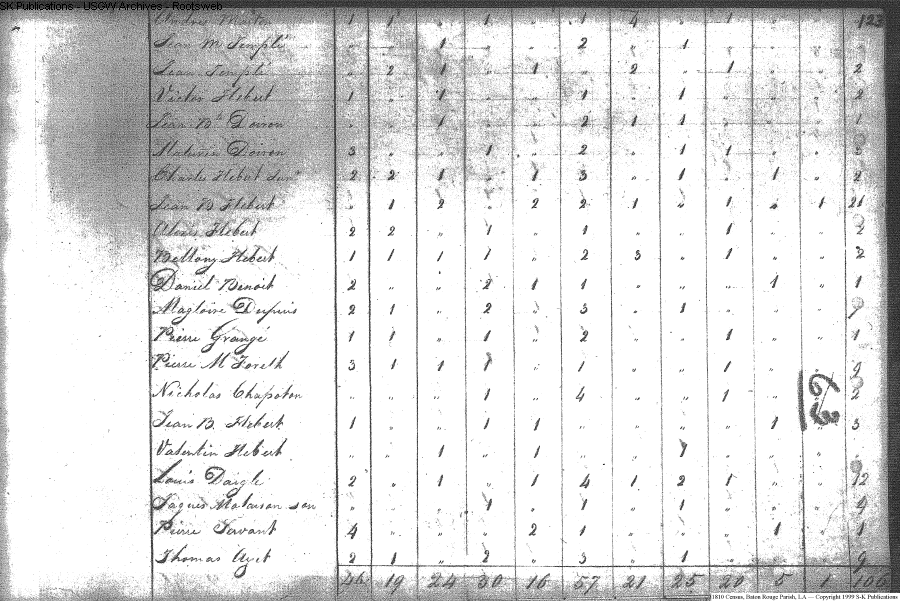 SK Publications - USGW Archives - Rootsweb
1 1 " 1 " 1 4 " 1 " " 123
Jean M Templé " " 1 " " 2 " 1 " " "
Jean Templé " 2 1 " 1 " 2 " 1 " " 2
Victor Hebert 1 " 1 " " 1 " 1 " " " 2
Jean Bte Doiron " " 1 " " 2 1 1 " " " 1
Maturin Doiron 3 " " 1 " 2 " 1 1 " " 2
Charles Hebert Senr 2 2 1 " 1 3 " 1 " 1 " 2
Jean B Hebert " 1 2 " 2 2 1 " 1 " 1 21
Hebert 2 2 " 1 " 1 " " 1 " " 2
Bellony Hebert 1 1 1 1 " 2 3 " 1 " " 2
Daniel Benoit 2 " " 2 1 1 " " " 1 " 1
Magloire Dupuis 2 1 " 2 " 3 " 1 " " " 9
Pierre Grangé 1 1 " 1 " 2 " " 1 " " 1
Pierre M Foreth 3 1 1 1 " 1 " " 1 " " 9
Nicholas Chapoton " " " 1 " 4 " " 1 " " 2
Jean B. Hebert 1 " " 1 1 " " " " 1 " 3
Valentin Hebert " " 1 " 1 " " 1 " " " "
Louis Daigle 2 " 1 " 1 4 1 2 1 " " 12
Jaques Malarson son " " " 1 " 1 " 1 " " " 9
Pierre Servant 4 " " " 2 1 " " " 1 " 1
Thomas 2 1 " 2 " 3 " 1 " " " 9
46 19 24 30 16 57 21 25 20 5 1 106
1810 Census, Baton Rouge Parish, LA — Copyright 1999 S-K Publications